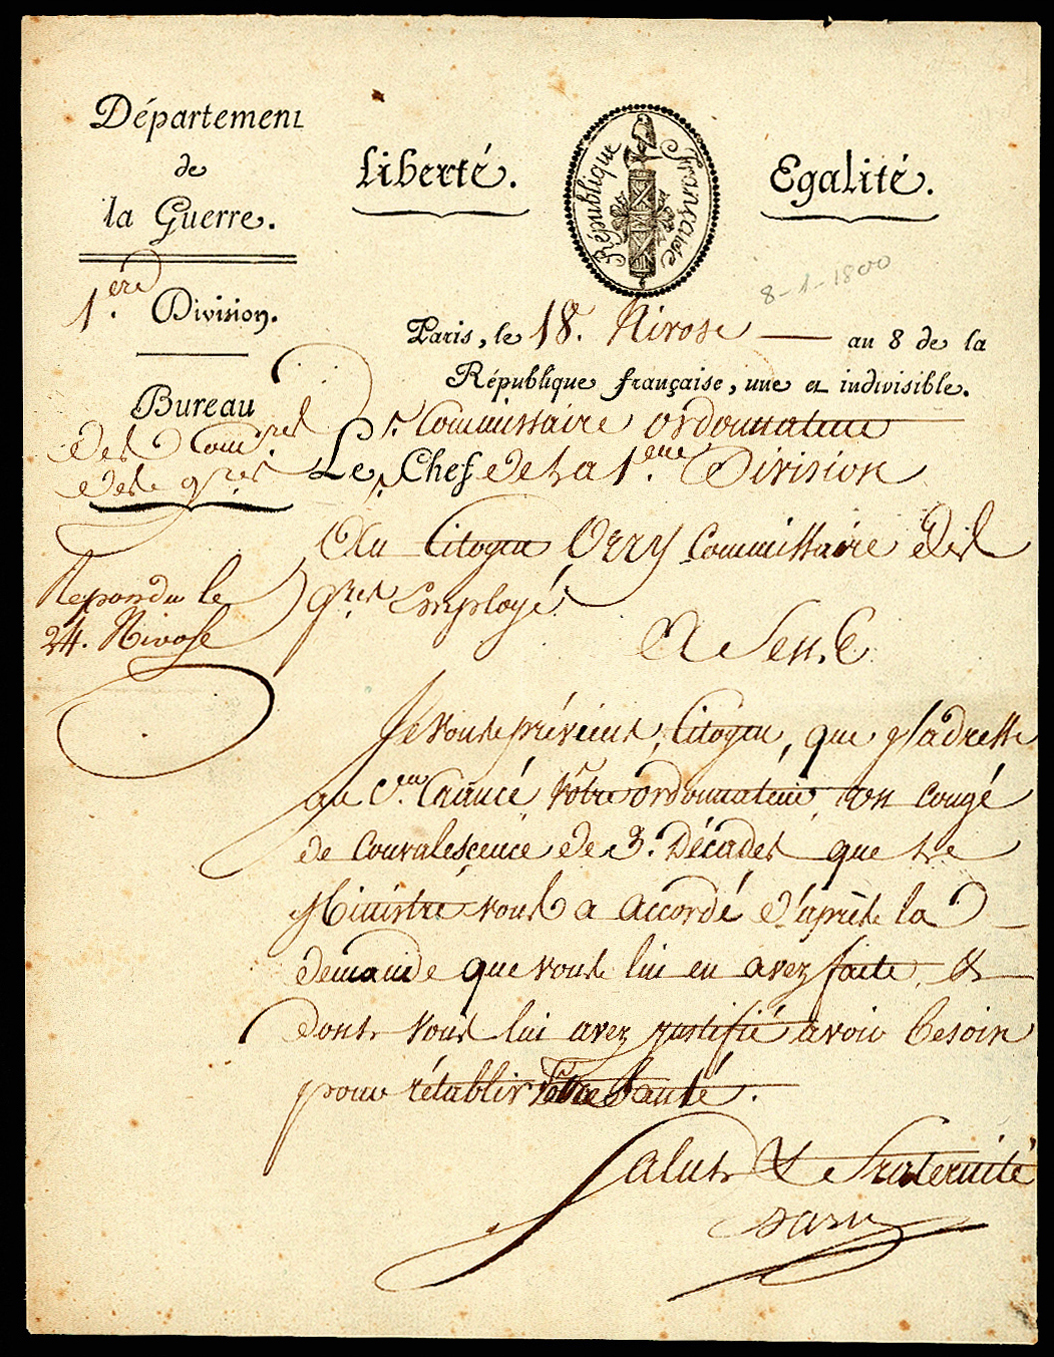 Département
de
la Guerre.
Liberté.
République Française
Egalité.
8-1-1800
1.ere Division.
Paris, le 18. Nivose an 8 de la
République française, une et indivisible.
Bureau
des Com.res
des gres
Commissaire ordonnateur
Le Chef de la 1.ere Division
Au Citoyen Orry Commissaire des
gres Employé
A Sens
Repondu le
24. Nivose
Je vous préviens, Citoyen, que j'adresse
au C.en Chancé votre ordonnateur, un congé
de Convalescence de 3. Décades que le
Ministre vous a accordé d'après la
demande que vous lui en avez faite, &
dont vous lui avez justifié avoir besoin
pour rétablir votre Santé.
Salut & Fraternité
Daru